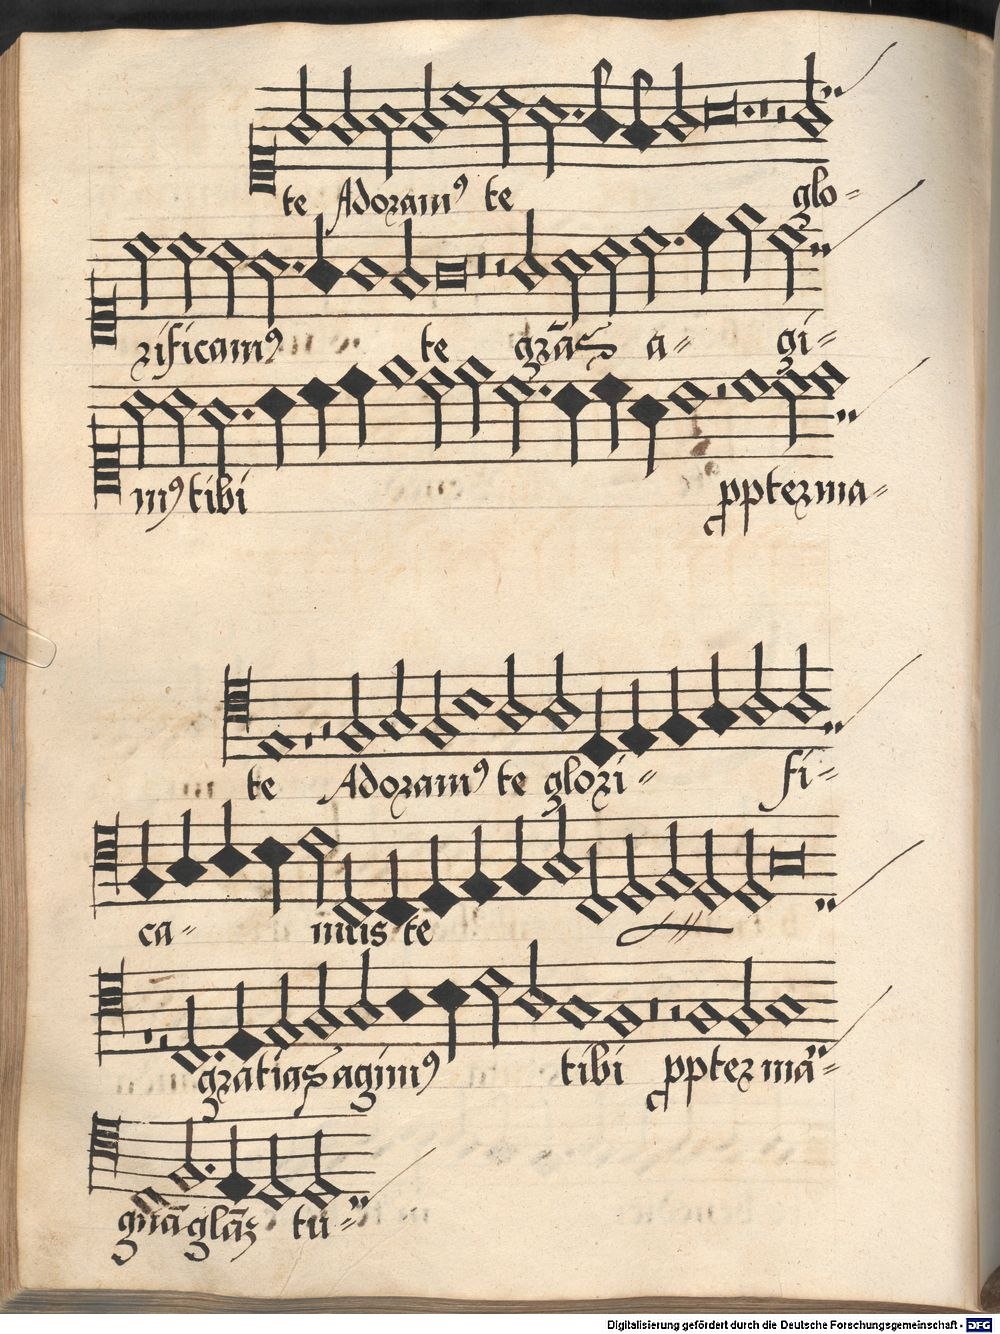 te Adoram⁹ te glo-
rificam⁹ te grãs a- gi-
m⁹ tibi ꝓpter ma-
te Adoram⁹ te glori- fi-
ca- mus te
gratias agim⁹ tibi ꝓpter mã-
gnã glãz tu-
Digitalisierung gefördert durch die Deutsche Forschungsgemeinschaft - DFG